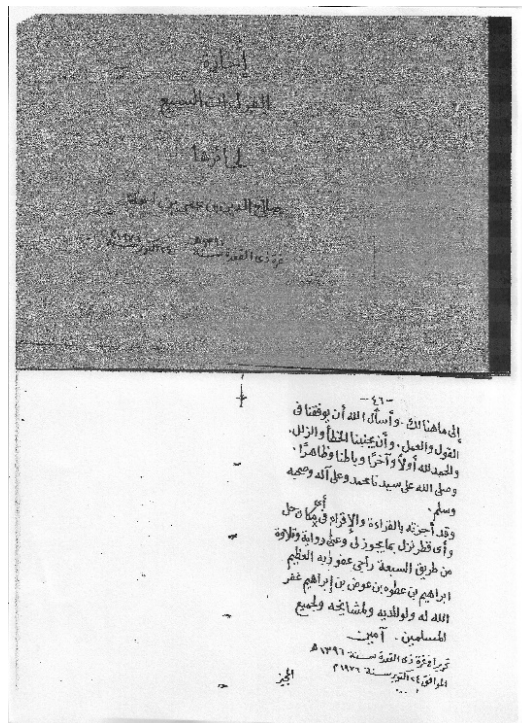 إجازة
القراءات السبع
لحافزها
صلاح الدين بن
غرة ذى القعدة سنة ١٣٩٦ هـ
٢٤ أكتوبر سنة ١٩٧٦ م
-٤٦-
إلى ما هنالك. وأسأل الله أن يوفقنا فى
القول والعمل. وأن يجنبنا الخطأ والزلل.
والحمد لله أولاً وآخرًا وباطنا وظاهرًا.
وصلى الله على سيدنا محمد وعلى آله وصحبه
وسلم.
وقد أجزته بالقراءة والإقراء فى أى مكان حل
وأى قطر نزل بما يجوز لى وعنى رواية وتلاوة
من طريق السبعة راجى عفو ربه العظيم
ابراهيم بن عطوه بن عوض بن إبراهيم غفر
الله له ولوالديه ولمشايخه ولجميع
المسلمين. آمين
تحريرا فى غرة ذى القعدة سنة ١٣٩٦ هـ
الموافق ٢٤ أكتوبر سنة ١٩٧٦ م
المجيز